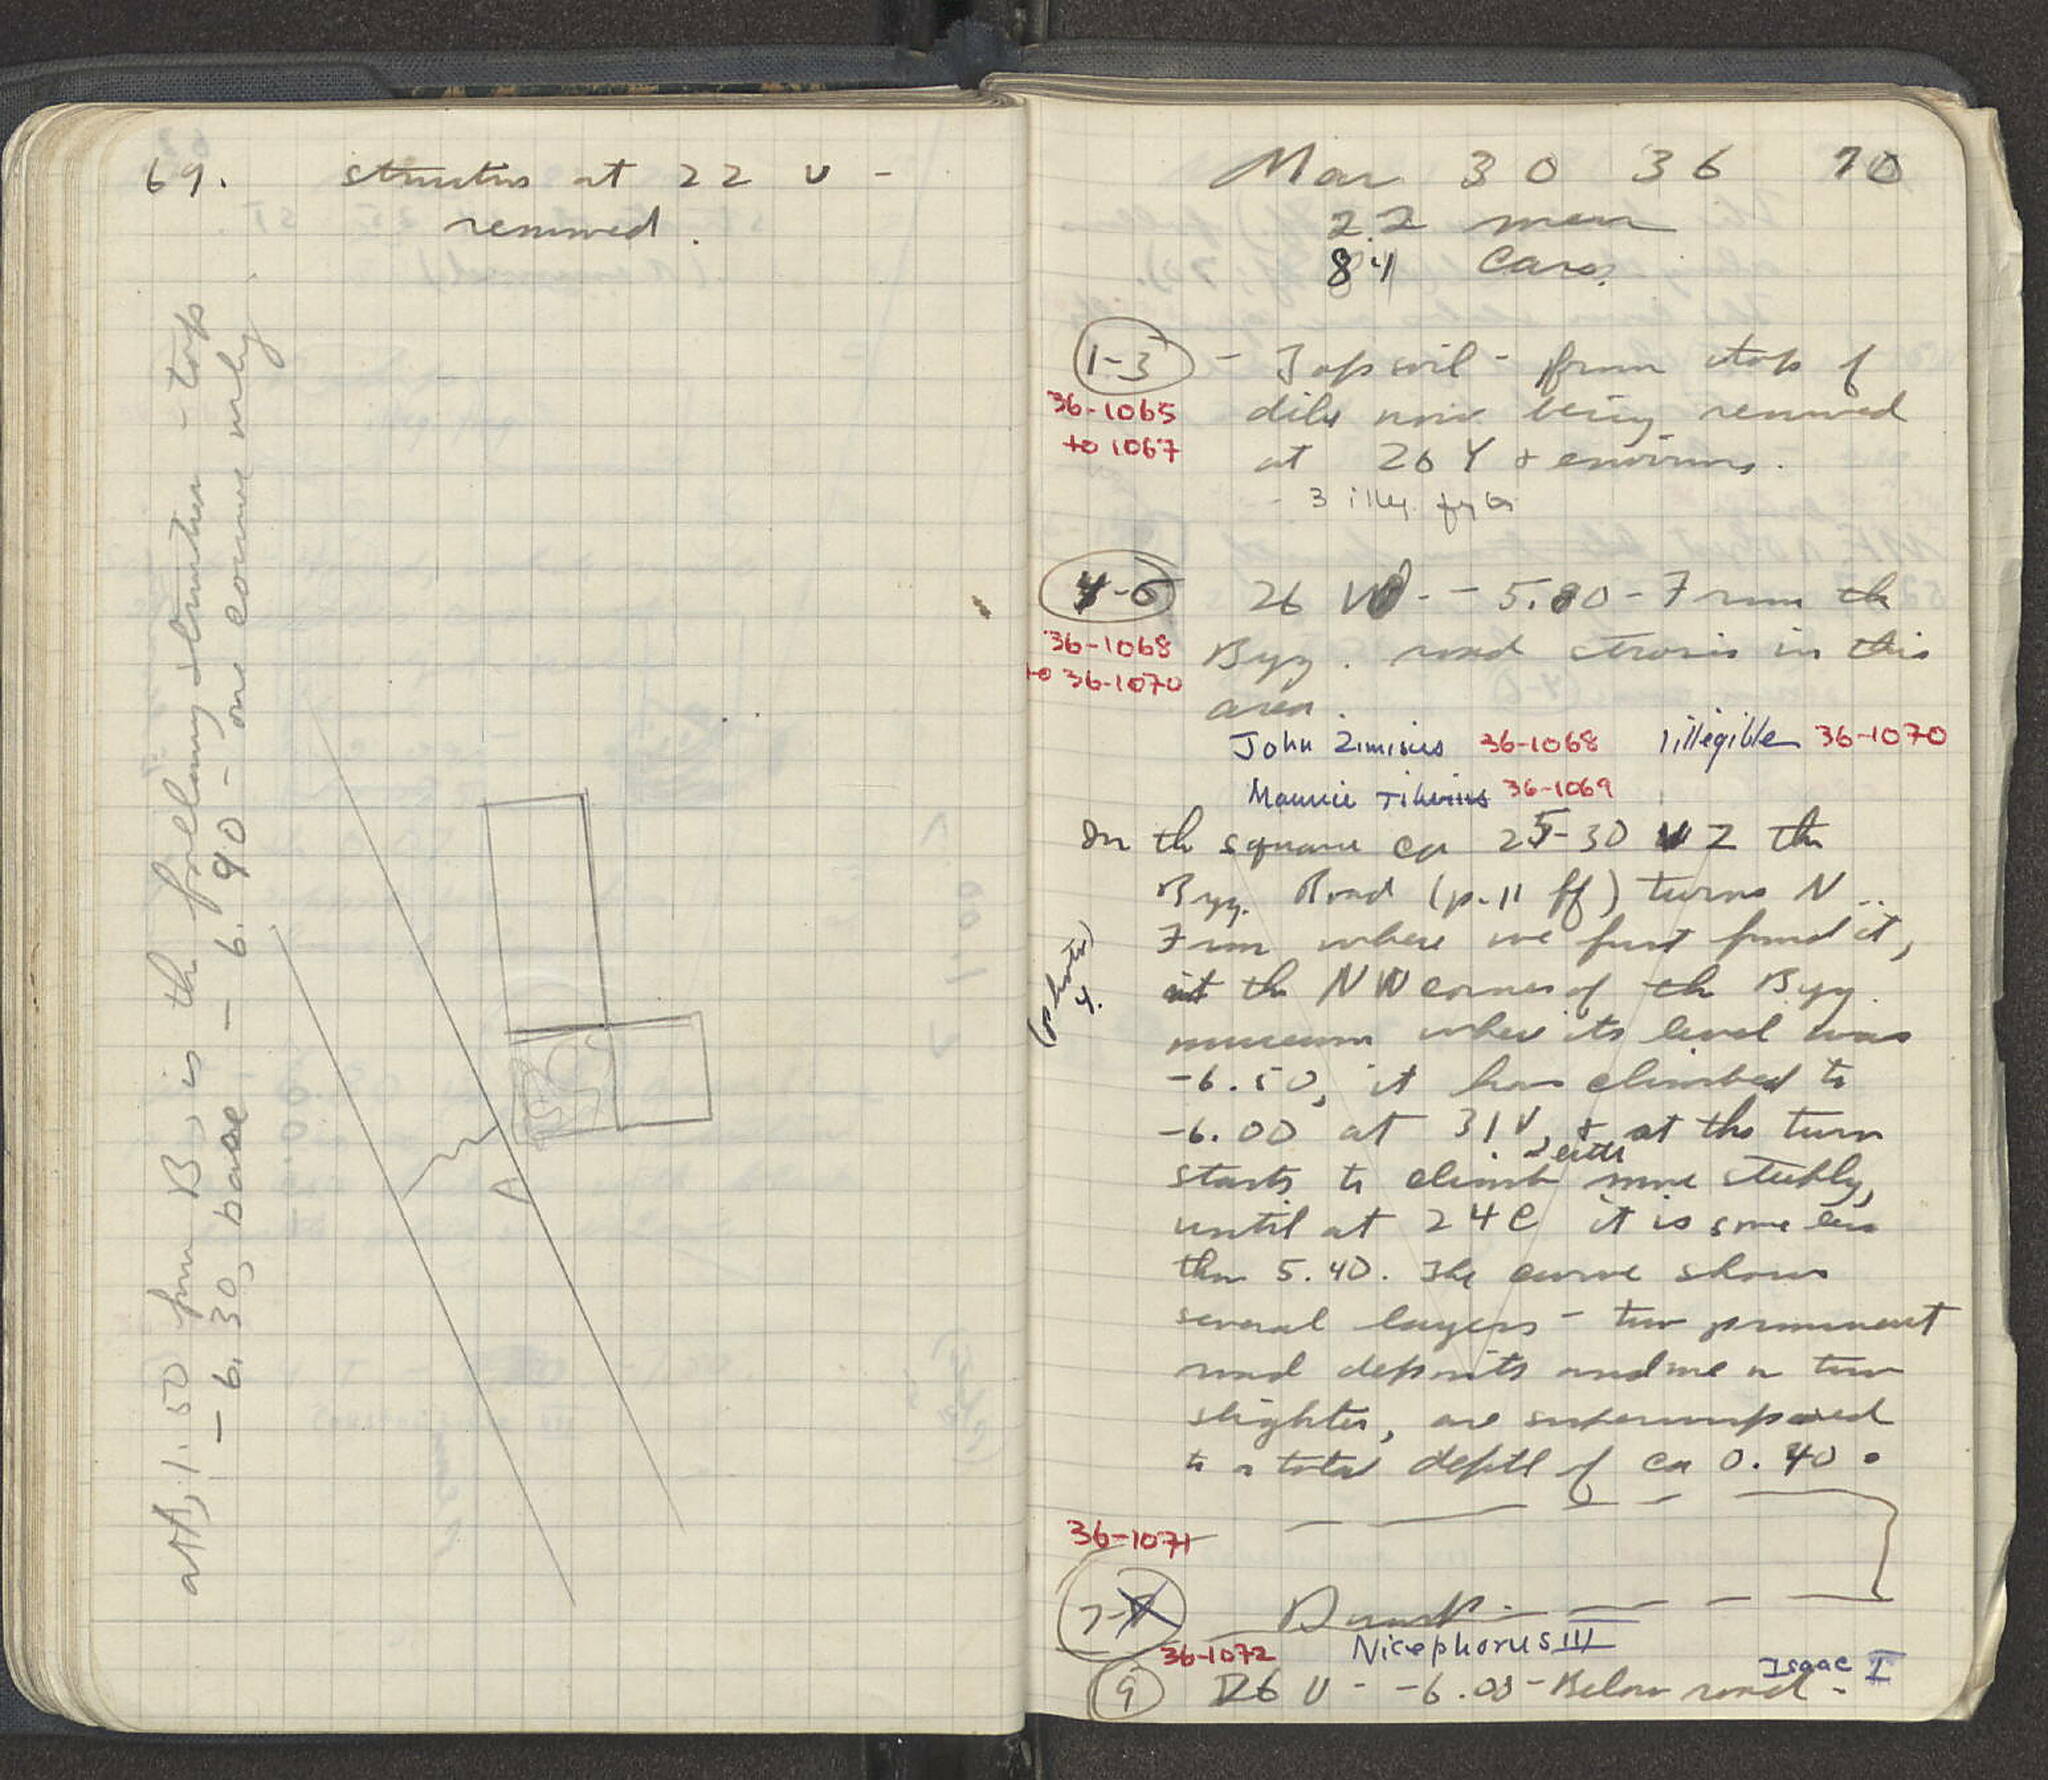 69. structus at 22 U -
removed.
at A, 1.50 from B, is the following situation - top
- 6.30, base - 6.90 - one course only
A
Mar 30 36 70
22 men
84 cars.
1-3 - Topsoil - from top of
36-1065 dike now being removed
to 1067 at 26 Y & environs.
- 3 illeg. fgts
4-6 26 W - - 5.80 - From the
36-1068 Byz. road strosis in this
to 36-1070 area.
John Zimisces 36-1068 1 illegible 36-1070
Maurice Tiberius 36-1069
In the square ca 25-30 U Z the
Byz. Road (p. 11 ff) turns N..
From where we first found it,
(photo) 4. at the NW corner of the Byz.
museum where its level was
-6.50, it has climbed to
-6.00 at 31 V, & at the turn
starts to climb more steeply,
until at 24 C it is some less
than 5.40. The curve shows
several layers - two prominent
road deposits and one or two
slighter, are superimposed
to a total depth of ca 0.40.
36-1071
7- Dump.
36-1072 Nicephorus III
Isaac I
9 26 U - -6.03 - Below road -